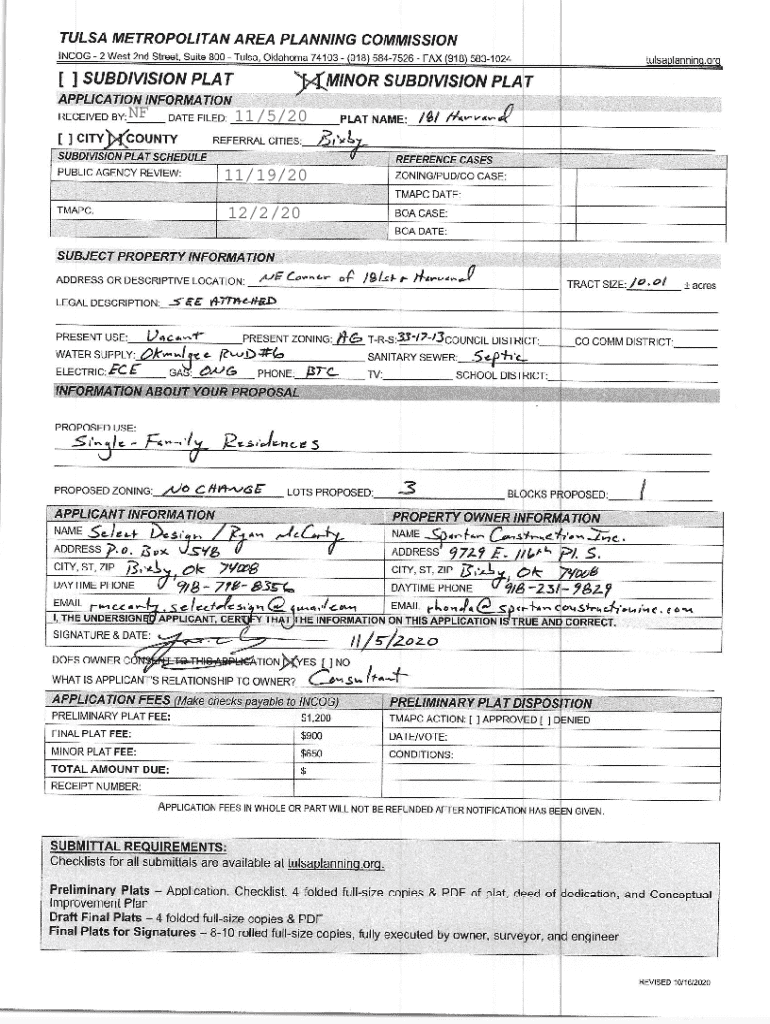 TULSA METROPOLITAN AREA PLANNING COMMISSION
INCOG - 2 West 2nd Street, Suite 800 - Tulsa, Oklahoma 74103 - (918) 584-7526 - FAX (918) 583-1024 tulsaplanning.org
[ ] SUBDIVISION PLAT [X] MINOR SUBDIVISION PLAT
APPLICATION INFORMATION
RECEIVED BY: NF DATE FILED: 11/5/20 PLAT NAME: 181 Harvard
[ ] CITY [X] COUNTY REFERRAL CITIES: Bixby
SUBDIVISION PLAT SCHEDULE REFERENCE CASES
PUBLIC AGENCY REVIEW: 11/19/20 ZONING/PUD/CO CASE:
TMAPC DATE:
TMAPC: 12/2/20 BOA CASE:
BOA DATE:
SUBJECT PROPERTY INFORMATION
ADDRESS OR DESCRIPTIVE LOCATION: NE Corner of 181st & Harvard TRACT SIZE: 10.01 ± acres
LEGAL DESCRIPTION: SEE ATTACHED
PRESENT USE: Vacant PRESENT ZONING: AG T-R-S: 33-17-13 COUNCIL DISTRICT: CO COMM DISTRICT:
WATER SUPPLY: Okmulgee RWD #6 SANITARY SEWER: Septic
ELECTRIC: ECE GAS: ONG PHONE: BTC TV: SCHOOL DISTRICT:
INFORMATION ABOUT YOUR PROPOSAL
PROPOSED USE:
Single-Family Residences
PROPOSED ZONING: NO CHANGE LOTS PROPOSED: 3 BLOCKS PROPOSED: 1
APPLICANT INFORMATION PROPERTY OWNER INFORMATION
NAME Select Design / Ryan McCarty NAME Spartan Construction Inc.
ADDRESS P.O. Box 548 ADDRESS 9729 E. 116th Pl. S.
CITY, ST, ZIP Bixby, OK 74008 CITY, ST, ZIP Bixby, OK 74008
DAYTIME PHONE 918-798-8356 DAYTIME PHONE 918-231-9829
EMAIL rmccarty.selectdesign@gmail.com EMAIL rhonda@spartanconstructioninc.com
I, THE UNDERSIGNED APPLICANT, CERTIFY THAT THE INFORMATION ON THIS APPLICATION IS TRUE AND CORRECT.
SIGNATURE & DATE: 11/5/2020
DOES OWNER CONSENT TO THIS APPLICATION [X] YES [ ] NO
WHAT IS APPLICANT'S RELATIONSHIP TO OWNER? Consultant
APPLICATION FEES (Make checks payable to INCOG) PRELIMINARY PLAT DISPOSITION
PRELIMINARY PLAT FEE: $1,200 TMAPC ACTION: [ ] APPROVED [ ] DENIED
FINAL PLAT FEE: $900 DATE/VOTE:
MINOR PLAT FEE: $650 CONDITIONS:
TOTAL AMOUNT DUE: $
RECEIPT NUMBER:
APPLICATION FEES IN WHOLE OR PART WILL NOT BE REFUNDED AFTER NOTIFICATION HAS BEEN GIVEN.
SUBMITTAL REQUIREMENTS:
Checklists for all submittals are available at tulsaplanning.org.
Preliminary Plats – Application, Checklist, 4 folded full-size copies & PDF of plat, deed of dedication, and Conceptual
Improvement Plan
Draft Final Plats – 4 folded full-size copies & PDF
Final Plats for Signatures – 8-10 rolled full-size copies, fully executed by owner, surveyor, and engineer
REVISED 10/16/2020